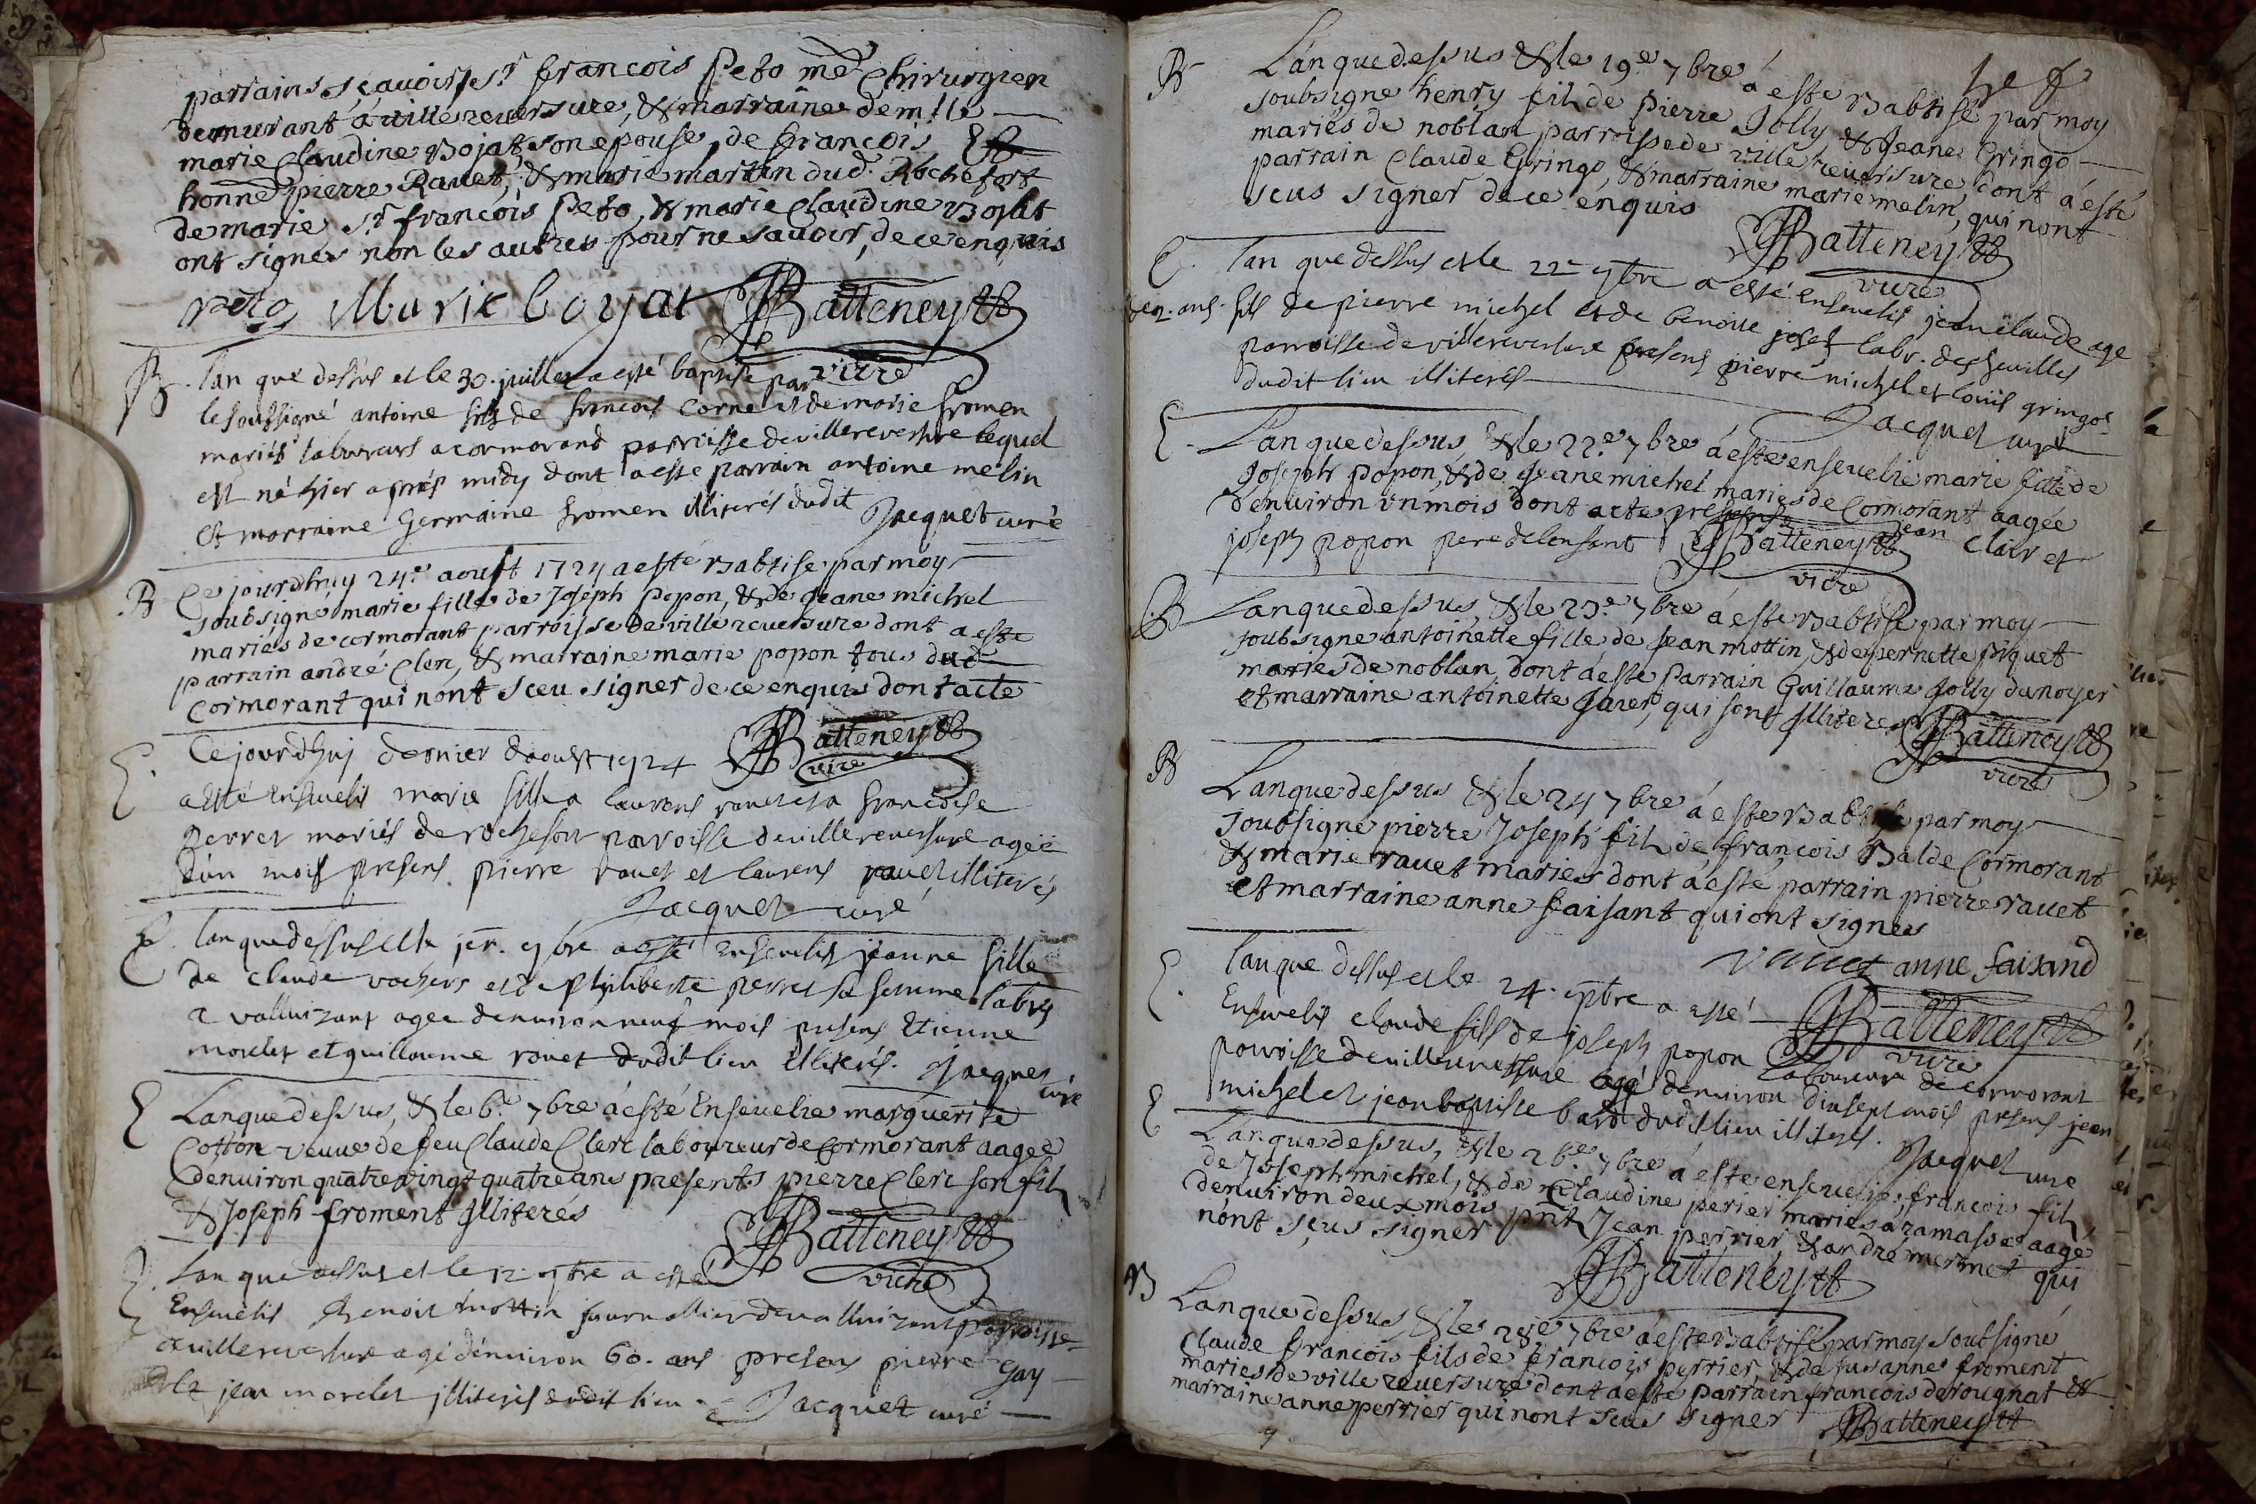 parrains sçavoir sr françois peto me chirurgien
demurant á villereuersure, & marraine demlle
marie Claudine Bojat son epouse, de françois
honne pierre Rauet, & marie martin dud. Rochefort
de marie sr françois peto, & marie Claudine Bojat
ont signes non les autres pour ne savoir, de ce enquis
peto Marie boyat Batteney
vicre
B. lan que dessus et le 30. juillet a esté baptise par
le soussigné antoine fils de francois Corne et de marie fromen
mariés laboureurs a cormorand parroisse de villereversure lequel
est né hier aprés midy dont a este parrain antoine melin
et marraine Germaine fromen illiterés dudit Jacquet curé
B Ce jourdhuy 24e aoust 1724 a esté Babtise par moy
soubsigné marie fille de Joseph Popon, & de jeane michel
mariés de cormorant parroisse de villereuersure dont a este
parrain andré Clerc, & marraine marie popon tous dud
Cormorant qui nont sceu signer de ce enquis dont acte
Batteney
vicre
E. Ce jourdhuj dernier daoust 1724
a esté Ensevelis marie fille a laurens rauet et a francoise
Perret mariés de rochefort paroisse de villereuersure agée
dun mois presens pierre rauet et laurens rauet illiterés
Jacquet curé
E. lan que dessus et le jer. 7bre a esté Ensevelis jeanne fille
de Claude vachers et de philiberte perret sa femme labrs
a valluizant agée denuiron neuf mois presens Etienne
morelet et guillaume rauet dudit lieu illiterés. Jacquet
curé
E Lan que dessus, & le 6e 7bre á esté Enseuelie marguerite
Cotton veuue de feu Claude Clerc laboureur de Cormorant aagée
denuiron quatre vingt quatre ans presents pierre Clerc son fils
& Joseph froment Illiterés Batteney
vicre
E. Lan que dessus et le 12 7bre a esté
Ensevelis Benoit mottin journallier de valluizant parroisse
de villereversure agé dénuiron 60. ans presens pierre Gay
et jean morelet jlliterés dudit lieu Jacquet curé
B Lan que dessus & le 19e 7bre á este Babtisé par moy
soubsigne henry fils de pierre Jolly & Jeane Gringo
mariés de noblan parroisse de villereuersure dont á esté
parrain Claude Gringo, & marraine marie melin, qui nont
sceus signer de ce enquis Batteney
vicre
E. lan que dessus et le 22 7bre a esté ensevelis jean claude age
de 2. ans. fils de pierre michel et de benoite josset labr. des feuilles
parroisse de villereversure presens pierre michel et louis gringoz
dudit lieu illiterés
Jacquet curé
E. Lan que dessus, & le 22e 7bre á este enseuelie marie fille de
Joseph popon, & de Jeane michel maries de Cormorant aagée
denuiron un mois dont acte presents jean Clair et
joseph popon pere de lenfant Batteney
vicre
B Lan que dessus, & le 23e 7bre á este Babtise par moy
soubsigne antoinette fille de Jean mottin, & de pernette piquet
maries de noblan, dont á este parrain Guillaume Jolly du noyer
et marraine antoinette Jarer, qui sont Illiteres Batteney
vicre
B Lan que dessus & le 24 7bre á este Babtise par moy
soubsigne pierre Joseph fils de, françois Bal de Cormorant
& marie rauet maries dont á esté parrain pierre rauet
et marraine anne faisant qui ont signés
rauet anne faisand
E. lan que dessus et le 24. 7bre a esté Batteney
vicre
Ensevelis claude fils de joseph popon laboureur de cormorant
parroisse de villereversure agé denuiron dixsept mois presens jean
michel et jean baptiste bal dudit lieu illiterés. Jacquet curé
E Lan que dessus, & le 26e 7bre á este enseuelis, francois fils
de Joseph michel, & de Claudine perier mariés á ramasse aagé
denuiron deux mois pnt Jean perrier, & andré mermet qui
nont sçeus signer Batteney
B Lan que dessus & le 28e 7bre á este Babtisé par moy soubsigné
Claude francois fils de francois perrier, & de susanne froment
maries de villereuersure dont a este parrain francois derougnat &
marraine anne perrier qui nont sceus signer Batteney